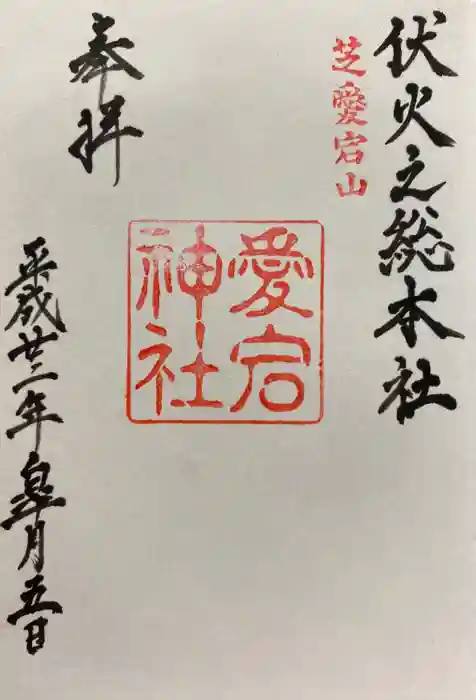 伏火之総本社
芝愛宕山
愛宕
神社
奉拝
平成廿三年皐月五日